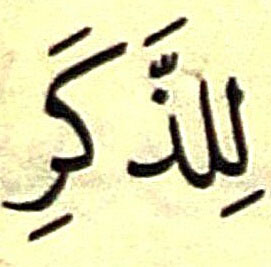 لِلذَّكَرِ